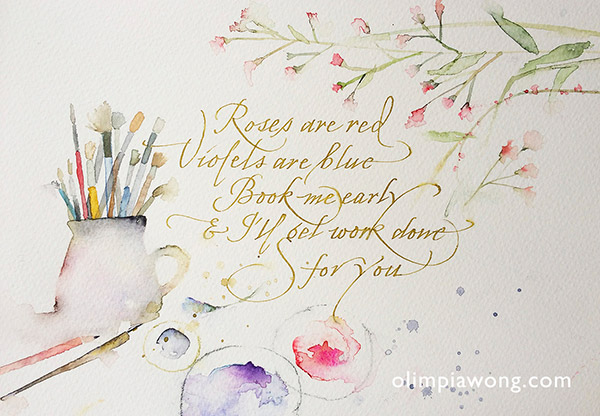 Roses are red
Violets are blue
Book me early
& I'll get work done
for you
olimpiawong.com